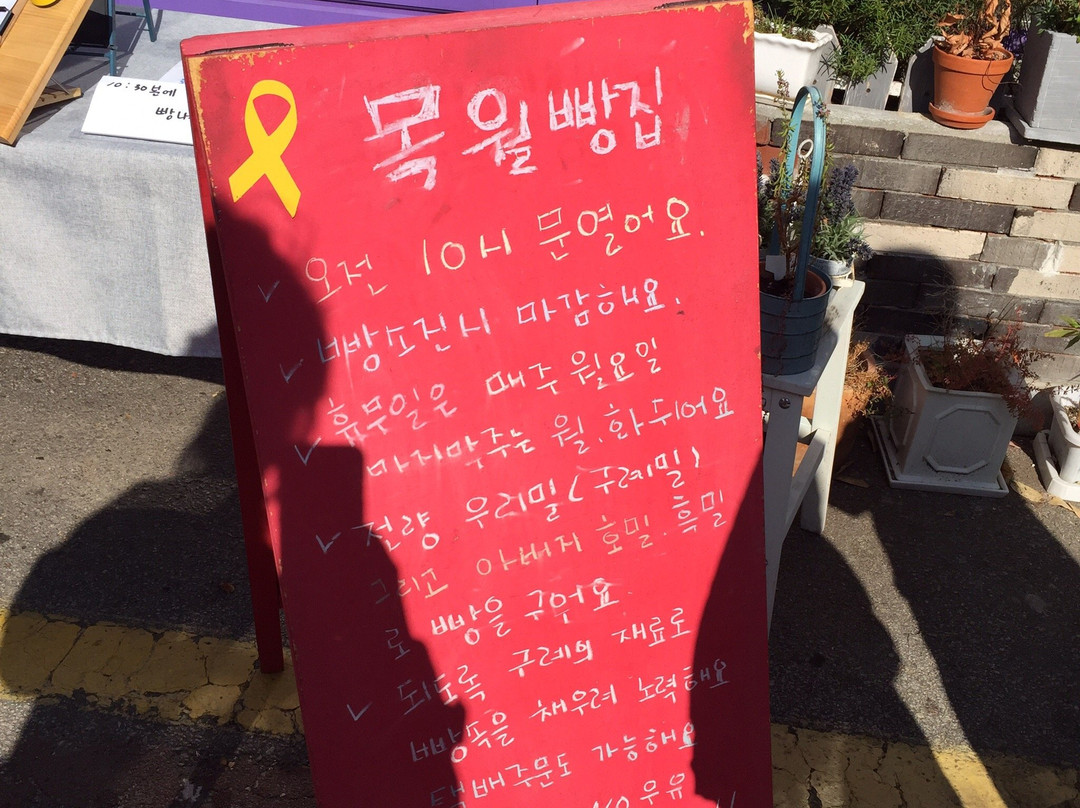 10:30분에
빵나
목월빵집
✓ 오전 10시 문열어요.
✓ 빵소진시 마감해요.
✓ 휴무일은 매주 월요일
마지막주는 월.화 쉬어요
✓ 전량 우리밀(구례밀)
그리고 아버지 호밀.흑밀
로 빵을 구워요.
✓ 되도록 구례의 재료로
빵속을 채우려 노력해요
택배주문도 가능해요
우유